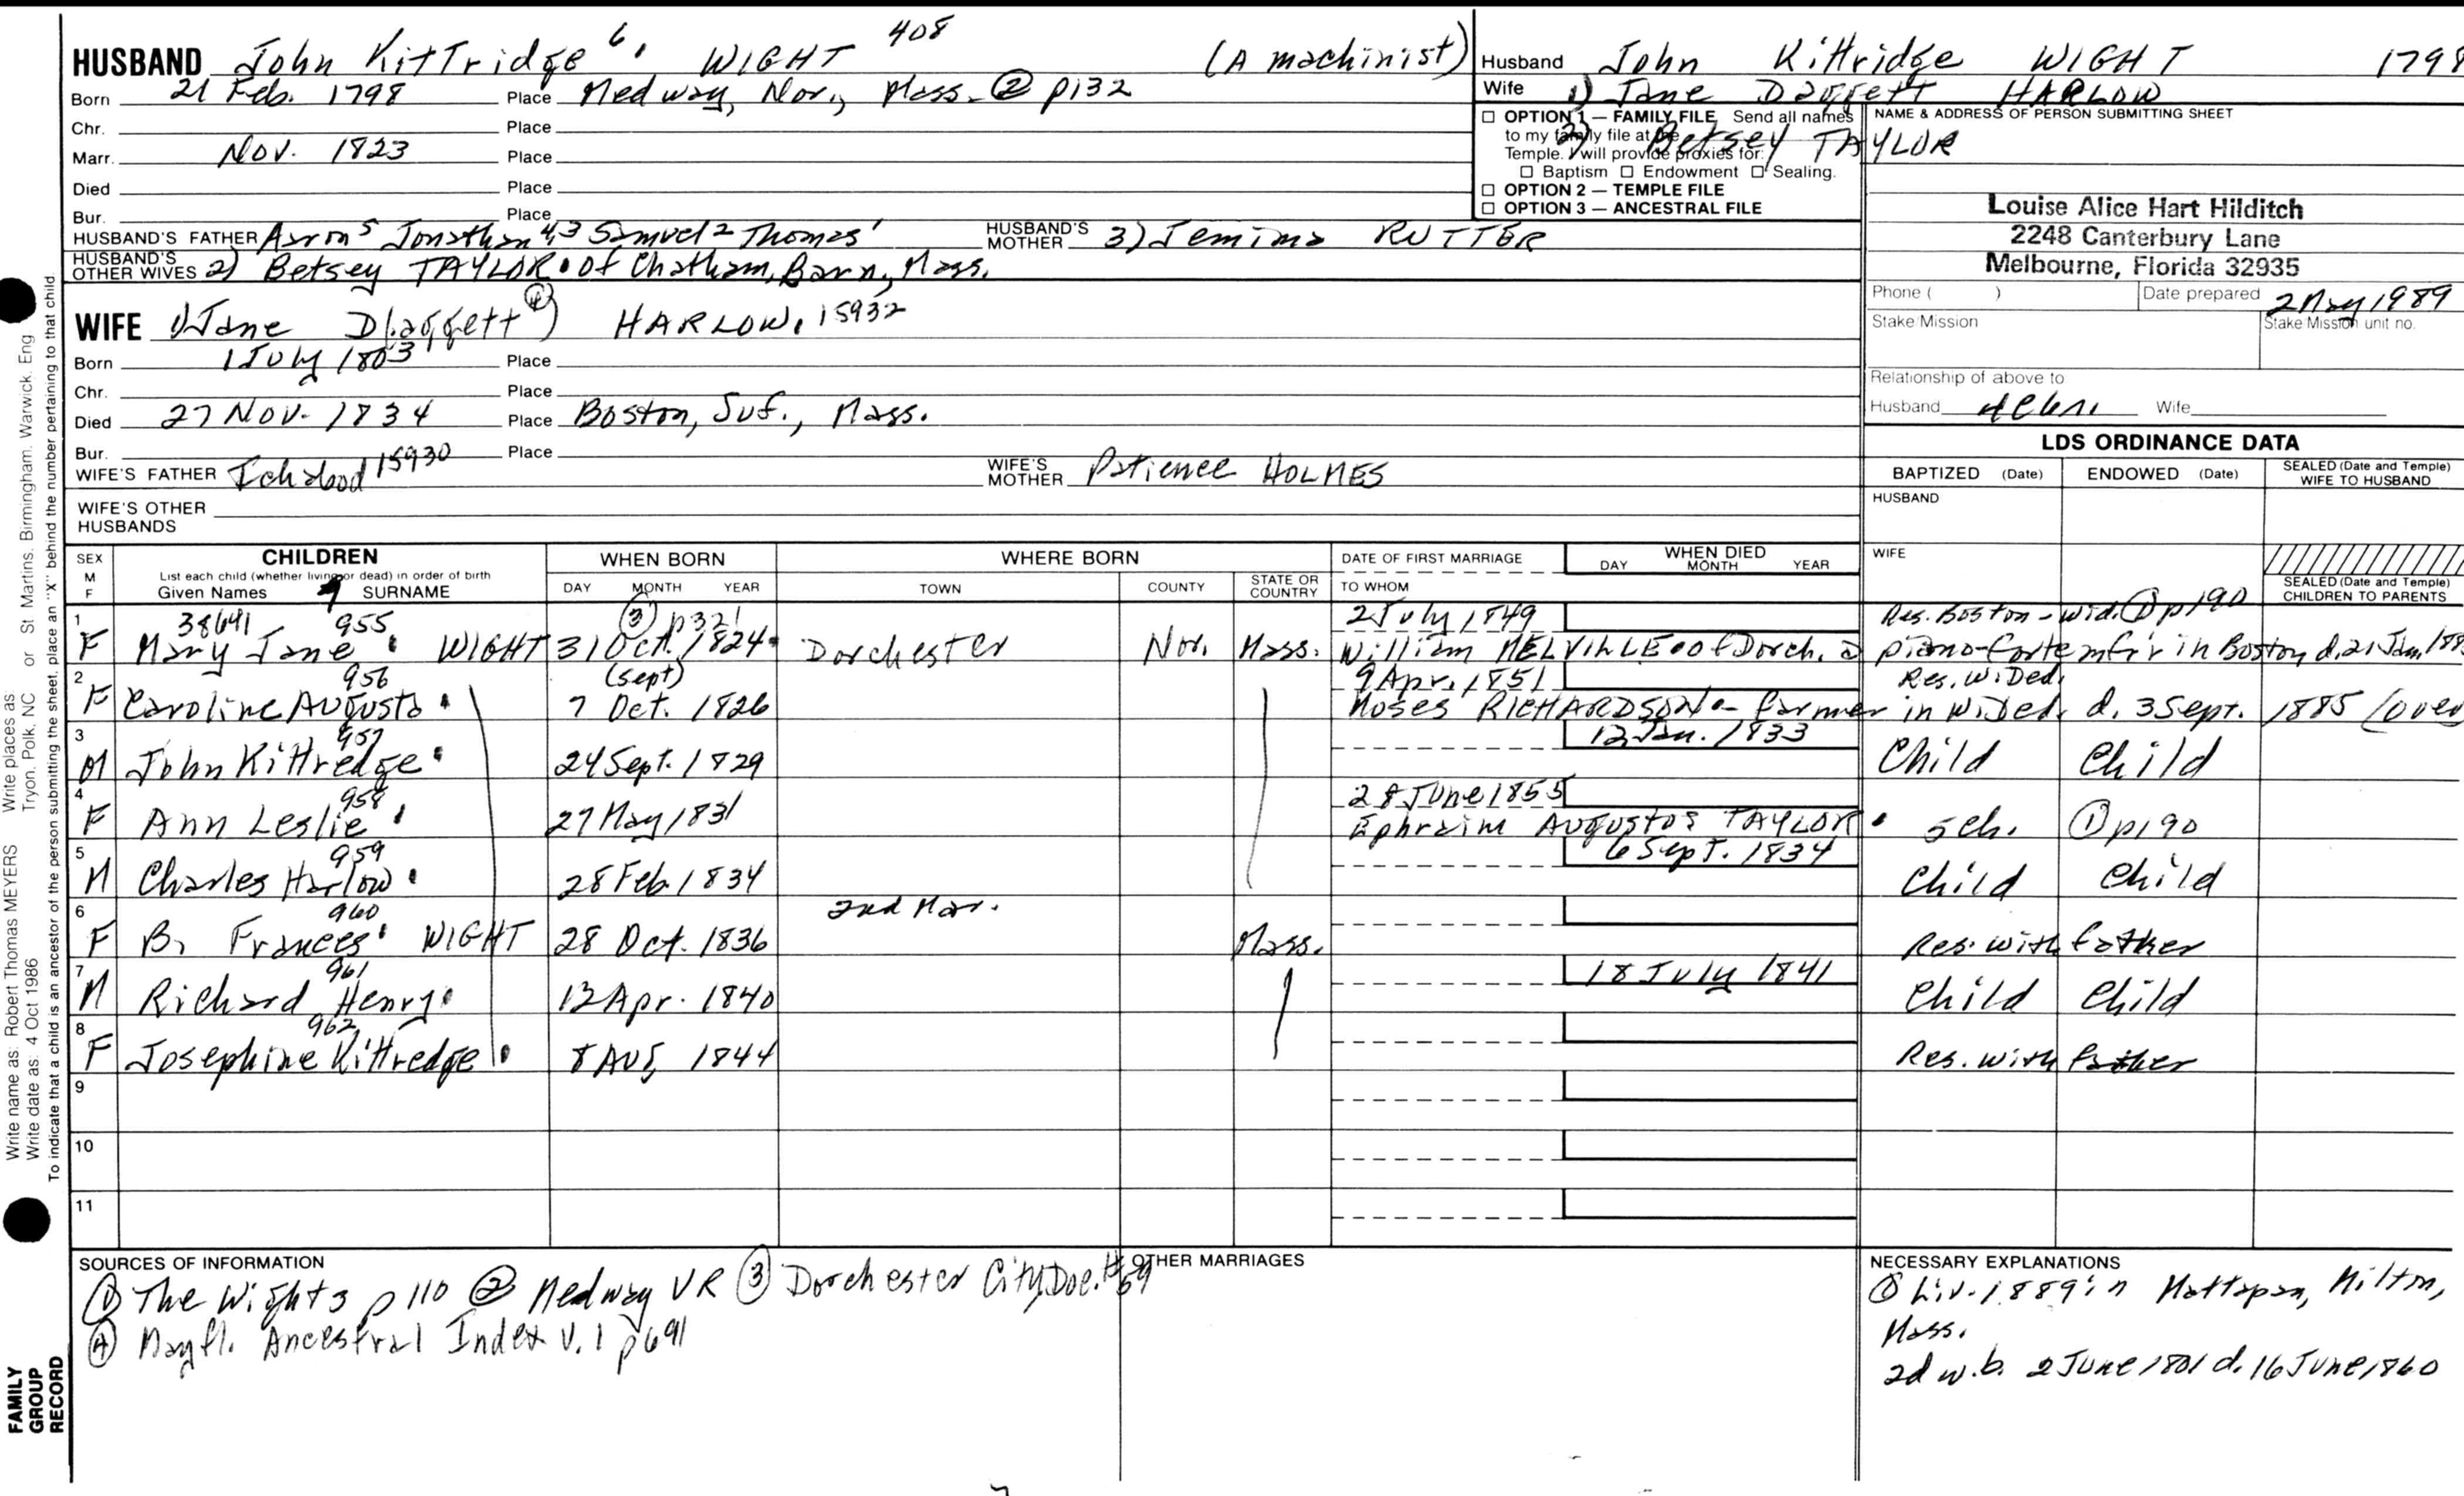 HUSBAND John Kittridge 6. WIGHT 408 (A machinist)
Born 21 Feb. 1798 Place Medway, Nor., Mass. ② p132
Chr. Place
Marr. Nov. 1823 Place
Died Place
Bur. Place
HUSBAND'S FATHER Aaron 5 Jonathan 4,3 Samuel 2 Thomas 1 HUSBAND'S MOTHER 3) Jemima RUTTER
HUSBAND'S OTHER WIVES 2) Betsey TAYLOR. of Chatham, Barn, Mass.
WIFE 1) Jane D(aggett ④) HARLOW. 15932
Born 1 July 1803 Place
Chr. Place
Died 27 Nov. 1834 Place Boston, Suf., Mass.
Bur. Place
WIFE'S FATHER Ichabod 15930 WIFE'S MOTHER Patience HOLMES
WIFE'S OTHER HUSBANDS
Husband John Kittridge WIGHT 1798
Wife 1) Jane Daggett HARLOW
2) Betsey TAYLOR
☐ OPTION 1 — FAMILY FILE Send all names
to my family file at the
Temple. I will provide proxies for:
☐ Baptism ☐ Endowment ☐ Sealing.
☐ OPTION 2 — TEMPLE FILE
☐ OPTION 3 — ANCESTRAL FILE
NAME & ADDRESS OF PERSON SUBMITTING SHEET
Louise Alice Hart Hilditch
2248 Canterbury Lane
Melbourne, Florida 32935
Phone ( ) Date prepared 2 May 1989
Stake/Mission Stake/Mission unit no.
Relationship of above to
Husband Wife
LDS ORDINANCE DATA
BAPTIZED (Date) ENDOWED (Date) SEALED (Date and Temple) WIFE TO HUSBAND
HUSBAND
WIFE
SEALED (Date and Temple) CHILDREN TO PARENTS
SEX M F CHILDREN WHEN BORN WHERE BORN DATE OF FIRST MARRIAGE WHEN DIED
List each child (whether living or dead) in order of birth
Given Names SURNAME DAY MONTH YEAR TOWN COUNTY STATE OR COUNTRY TO WHOM DAY MONTH YEAR
1 38641 955 ③ p321 2 July 1849 Res. Boston - wid. ① p190
F Mary Jane. WIGHT 31 Oct. 1824. Dorchester Nor. Mass. William MELVILLE. of Dorch. a piano-forte mf'r in Boston d. 21 Jan. 188
2 956 (Sept) 9 Apr. 1851 Res. W. Ded.
F Caroline Augusta. 7 Oct. 1826 Moses RICHARDSON. - farmer in W. Ded. d. 3 Sept. 1885 (over
3 957 12 Jan. 1833
M John Kittredge. 24 Sept. 1829 Child Child
4 958 28 June 1855
F Ann Leslie. 27 May 1831 Ephraim Augustus TAYLOR. 5 ch. ① p190
5 959 6 Sept. 1834
M Charles Harlow. 28 Feb. 1834 Child Child
6 960 2nd Mar.
F B. Frances. WIGHT 28 Oct. 1836 Mass. Res. with father
7 961 18 July 1841
M Richard Henry. 12 Apr. 1840 Child Child
8 962
F Josephine Kittredge. 8 Aug 1844 Res. with father
9
10
11
SOURCES OF INFORMATION
① The Wights p 110 ② Medway VR ③ Dorchester City Doc. #59
④ Mayfl. Ancestral Index V. 1 p691
OTHER MARRIAGES
NECESSARY EXPLANATIONS
① Liv. 1889 in Mattapan, Milton,
Mass.
2d w. b. 2 June 1801 d. 16 June 1860
Write name as: Robert Thomas MEYERS Write places as Tryon, Polk, NC or St Martins, Birmingham, Warwick, Eng
Write date as: 4 Oct 1986
To indicate that a child is an ancestor of the person submitting the sheet, place an "X" behind the number pertaining to that child.
FAMILY
GROUP
RECORD